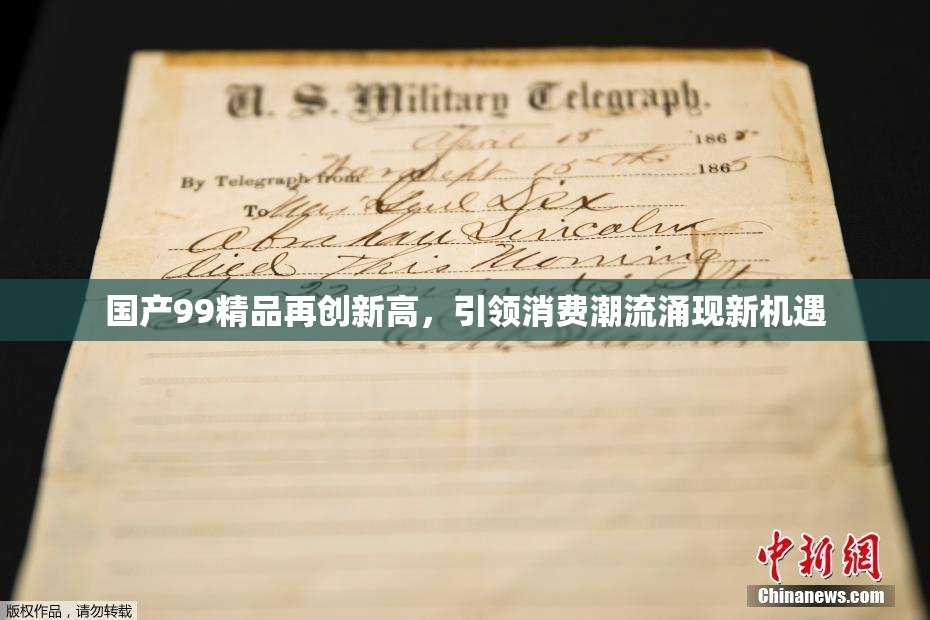 U. S. Military Telegraph.
April 15 1865
By Telegraph from War Dept 15th 1865
To Maj Genl Dix
Abraham Lincoln
died This Morning
22 minutes after
国产99精品再创新高，引领消费潮流涌现新机遇
E. M. Stanton
中新网
Chinanews.com
版权作品，请勿转载